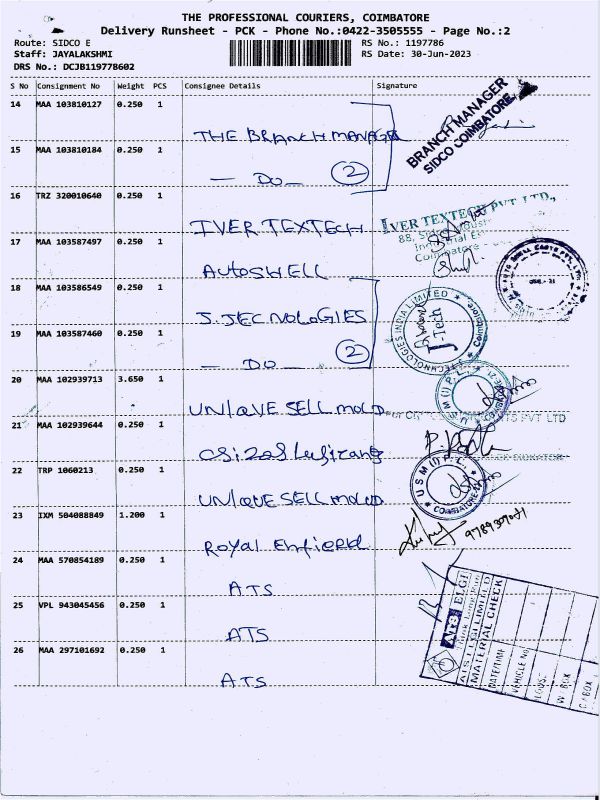 THE PROFESSIONAL COURIERS, COIMBATORE
Delivery Runsheet - PCK - Phone No.:0422-3505555 - Page No.:2
Route: SIDCO E
RS No.: 1197786
Staff: JAYALAKSHMI
RS Date: 30-Jun-2023
DRS No.: DCJB119778602
S No Consignment No Weight PCS Consignee Details Signature
14 MAA 103810127 0.250 1
THE BRANCH MANAGER
BRANCH MANAGER
SIDCO COIMBATORE
15 MAA 103810184 0.250 1
— DO — 2
16 TRZ 320010640 0.250 1
IVER TEXTECH
IVER TEXTECH PVT LTD.,
17 MAA 103587497 0.250 1
AUTOSWELL
18 MAA 103586549 0.250 1
J.TECNOLOGIES
TECHNOLOGIES INDIA LIMITED
Coimbatore
J-Tech
19 MAA 103587460 0.250 1
— DO — 2
20 MAA 102939713 3.650 1
UNIQVE SELL MOLD
U S M (I) P.L.
PVT LTD
21 MAA 102939644 0.250 1
22 TRP 1060213 0.250 1
UNIQVE SELL MOLD
U S M (I) P.L.
COIMBATORE
23 IXM 504088849 1.200 1
Royal Enfield
24 MAA 570854189 0.250 1
ATS
25 VPL 943045456 0.250 1
ATS
26 MAA 297101692 0.250 1
ATS
ATS ELGI
ATS ELGI LIMITED
MATERIAL CHECK
DATE/TIME
VEHICLE No
LOOSE
W.BOX
C/BOX